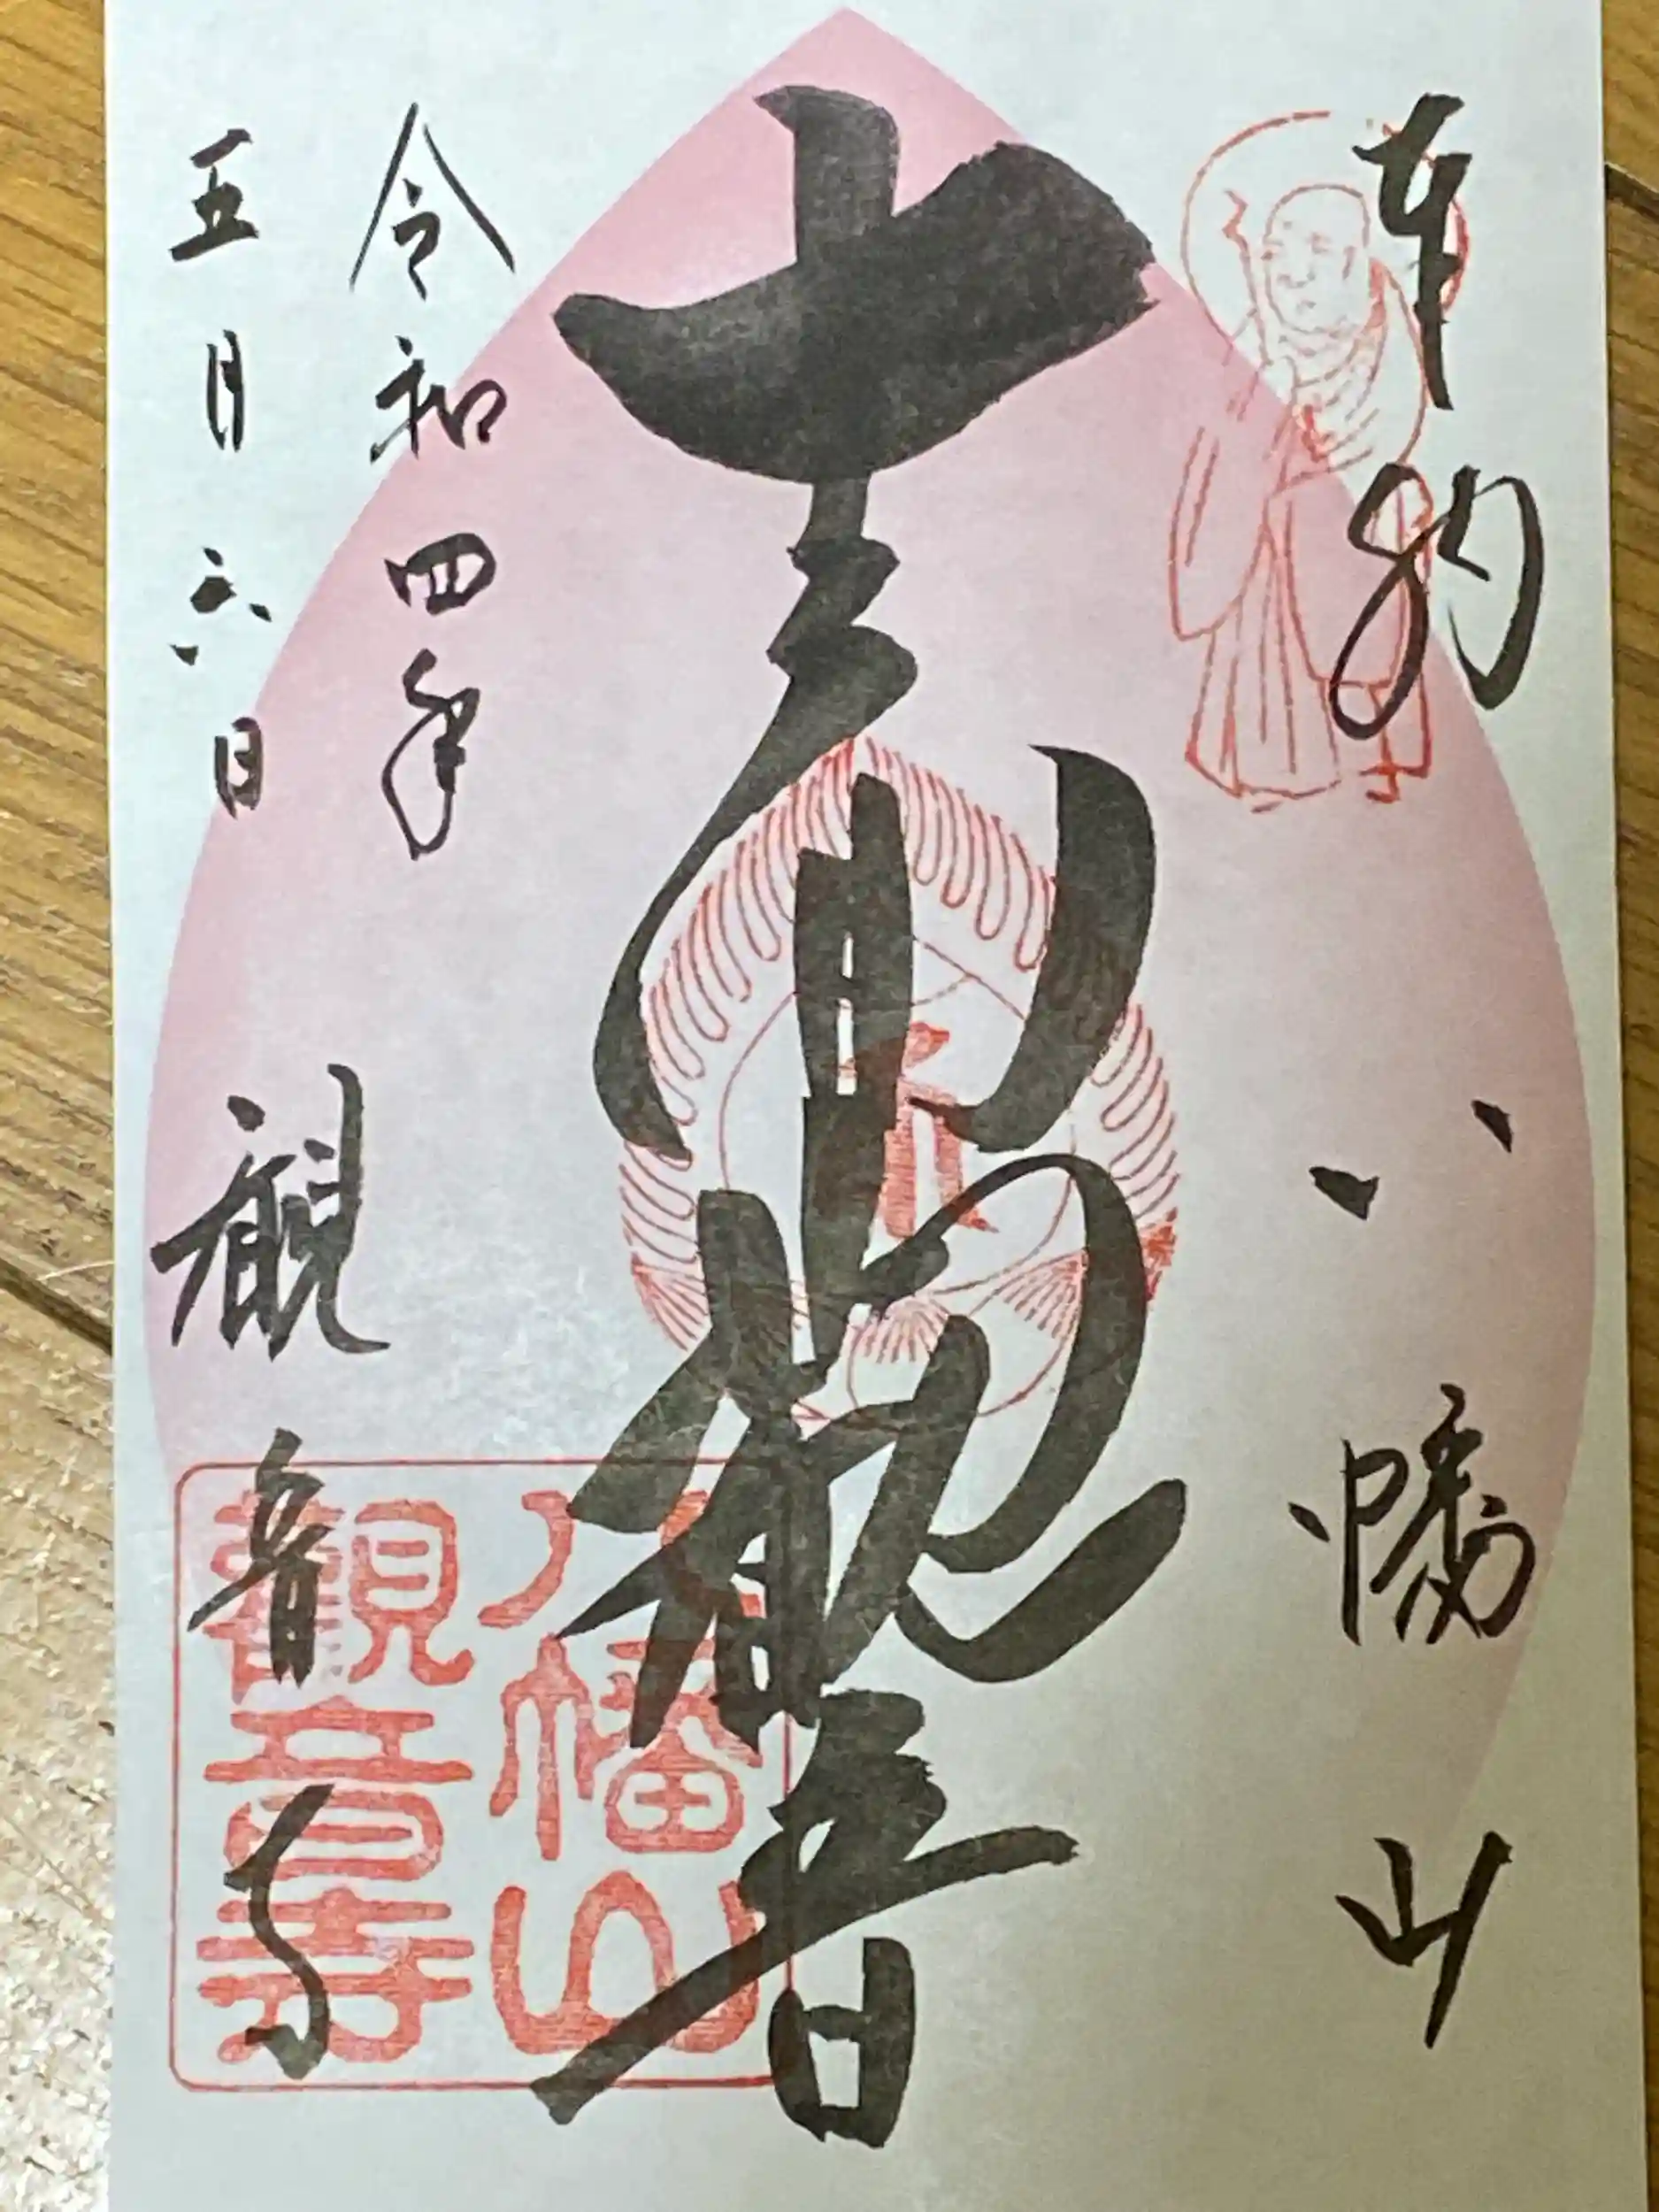 奉拝 八幡山
観音
令和四年
五月六日
観音寺
八幡山
觀音寺